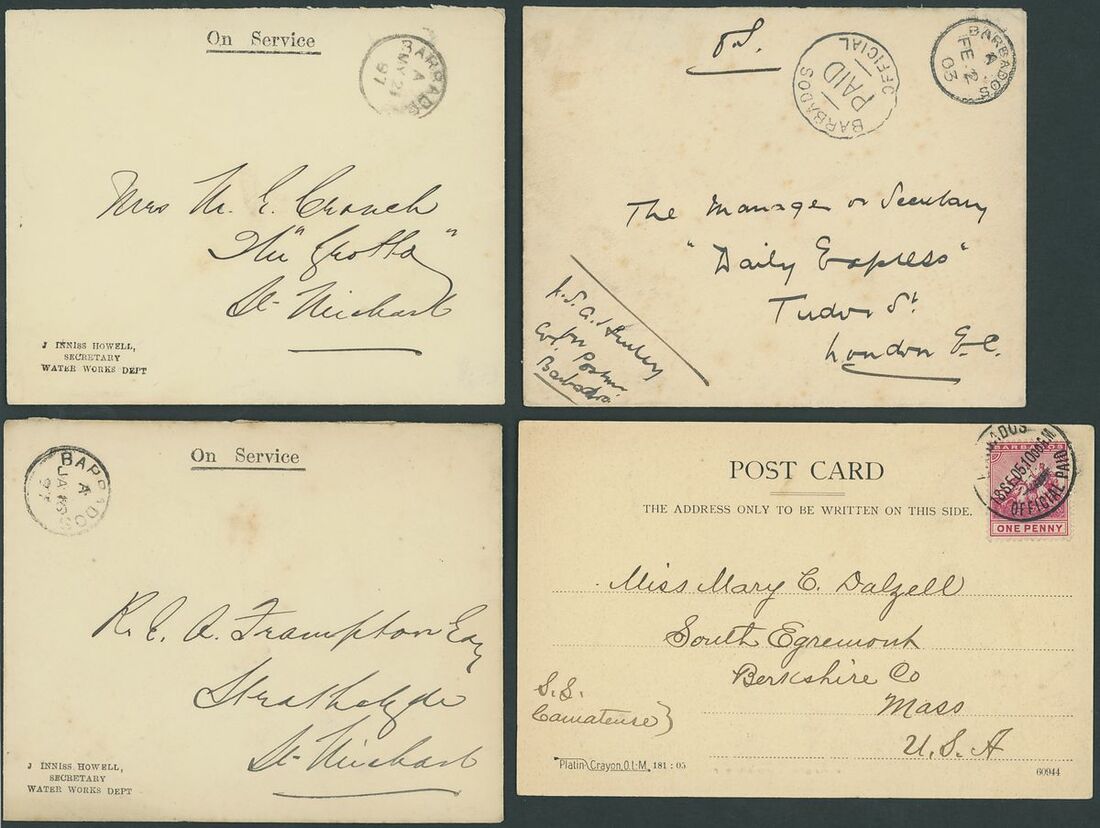 On Service
BARBADOS
A
MY 21
97
Mrs M. E. Crouch
The "Grotto"
St. Michael
J INNISS HOWELL,
SECRETARY
WATER WORKS DEPT
BARBADOS
PAID
OFFICIAL
BARBADOS
A
FE 2
03
The Manager or Secretary
"Daily Express"
Tudor St.
London E.C.
for
Barbados
On Service
BARBADOS
A
JA
97
R. E. A. Frampton Esq
Strathclyde
St. Michael
J INNISS HOWELL,
SECRETARY
WATER WORKS DEPT
POST CARD
THE ADDRESS ONLY TO BE WRITTEN ON THIS SIDE.
BARBADOS
18SE05.1000AM
OFFICIAL PAID
BARBADOS
ONE PENNY
Miss Mary C. Dalzell
South Egremont
Berkshire Co
Mass
U.S.A
S.S.
Platin-Crayon, O.I-M, 181 : 05
60944